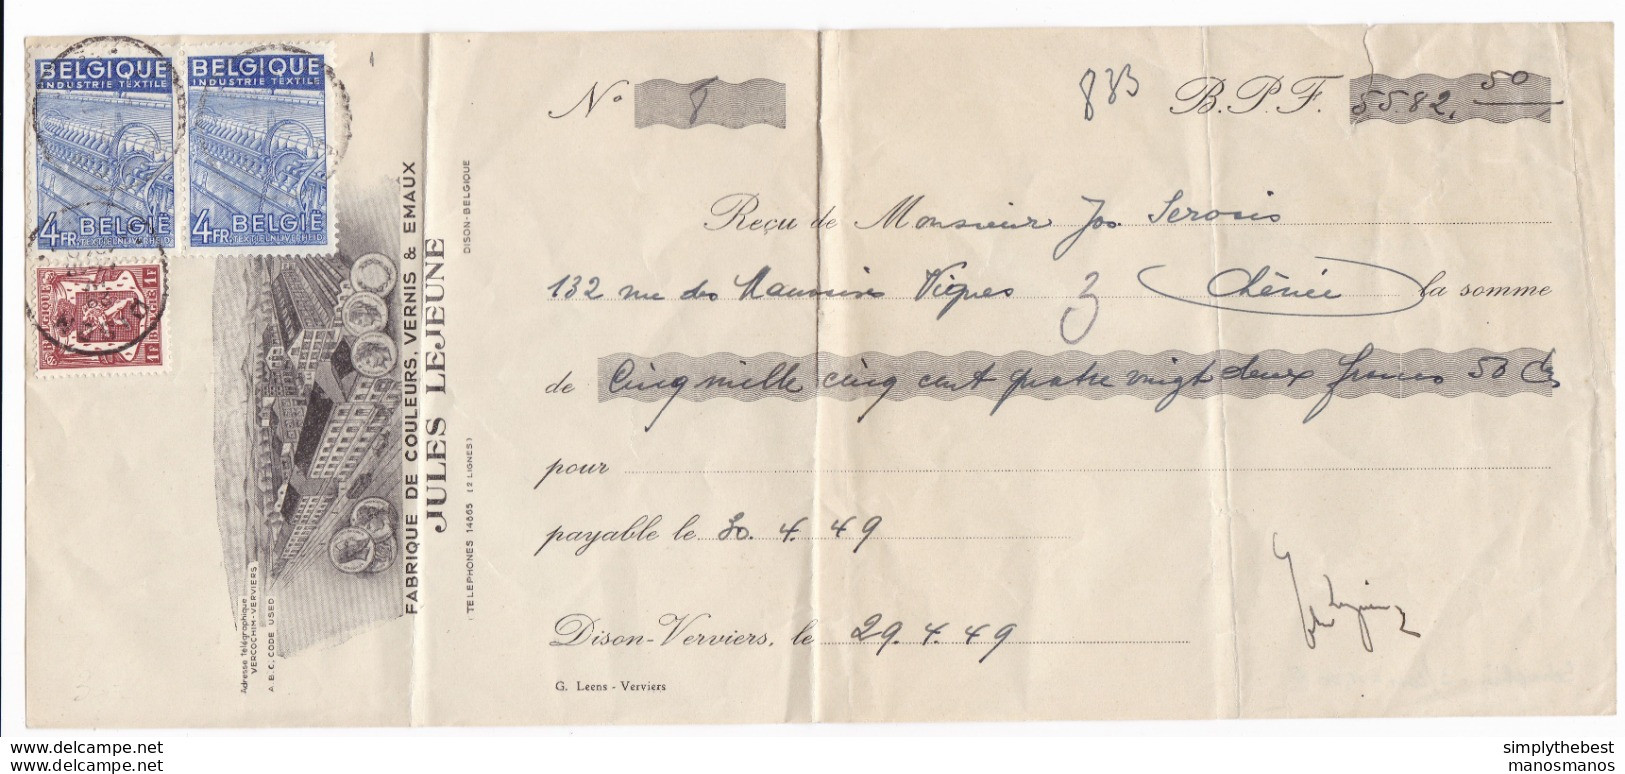 BELGIQUE
INDUSTRIE TEXTILE
4FR. BELGIË
TEXTIELNIJVERHEID
BELGIQUE
INDUSTRIE TEXTILE
4FR. BELGIË
TEXTIELNIJVERHEID
BELGIQUE 1F
1F BELGIË
FABRIQUE DE COULEURS, VERNIS & EMAUX
JULES LEJEUNE
DISON-BELGIQUE
(TELEPHONES 14865 (2 LIGNES)
Adresse Télégraphique
VERCOCHIM-VERVIERS
A.B.C. CODE USED
No 8
883
B.P.F. 5582,50
Reçu de Monsieur Jos.
132 rue des Vignes 3 Chênée la somme
de Cinq mille cinq cent quatre vingt deux francs 50 Cts
pour
payable le 30.4.49
Dison-Verviers, le 29.4.49
G. Leens - Verviers
www.delcampe.net
www.delcampe.net
simplythebest
manosmanos